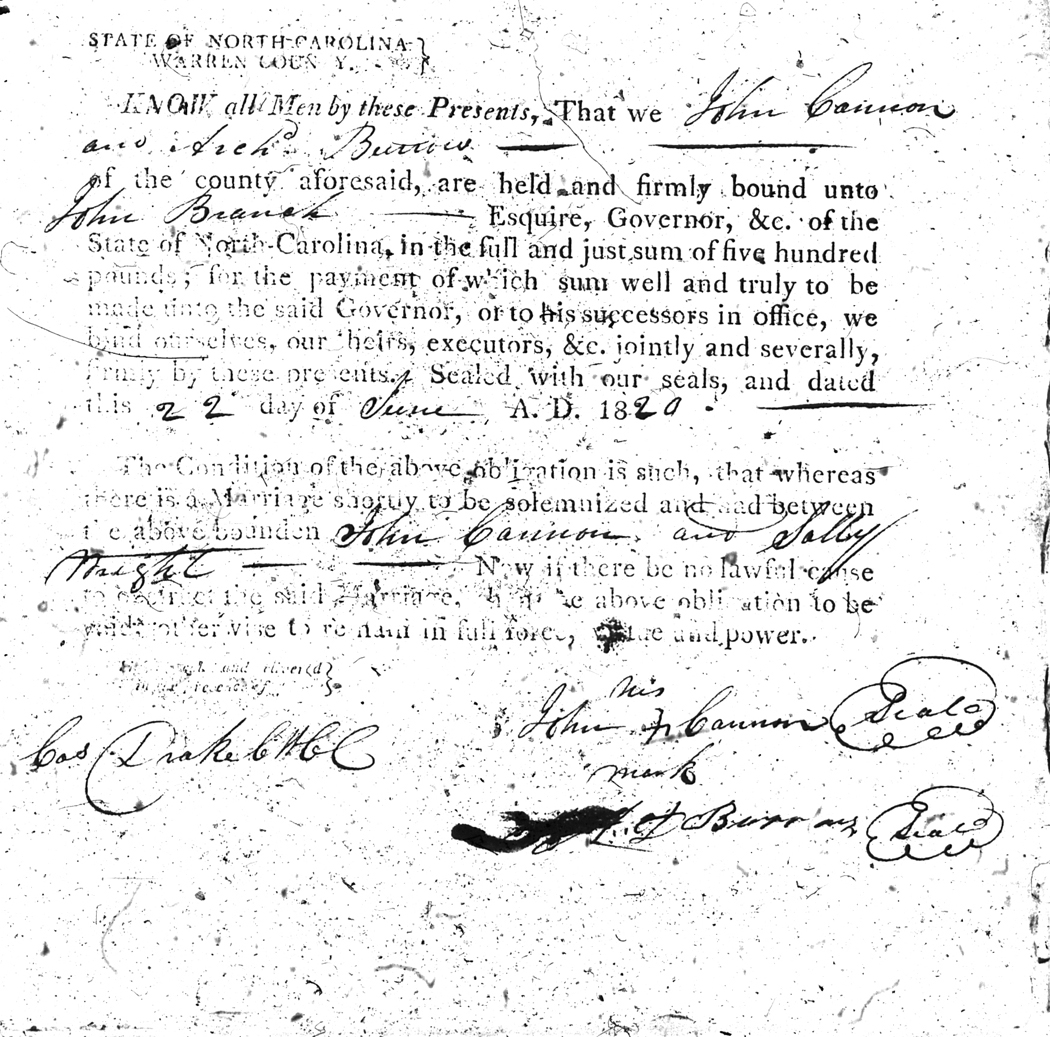 STATE OF NORTH-CAROLINA }
WARREN COUNTY. }
KNOW all Men by these Presents, That we John Cannon
and Archd. Burrow
of the county aforesaid, are held and firmly bound unto
John Branch Esquire, Governor, &c. of the
State of North-Carolina, in the full and just sum of five hundred
pounds; for the payment of which sum well and truly to be
made unto the said Governor, or to his successors in office, we
bind ourselves, our heirs, executors, &c. jointly and severally,
firmly by these presents. Sealed with our seals, and dated
this 22 day of June A. D. 1820.
The Condition of the above obligation is such, that whereas
there is a Marriage shortly to be solemnized and had between
the above bounden John Cannon and Salley
Wright Now if there be no lawful cause
to obstruct the said Marriage, then the above obligation to be
void; otherwise to remain in full force, virtue and power.
sealed and delivered }
in the presence of }
his
John Cannon Seal
mark
Cas Drake C W C C
Burrow Seal